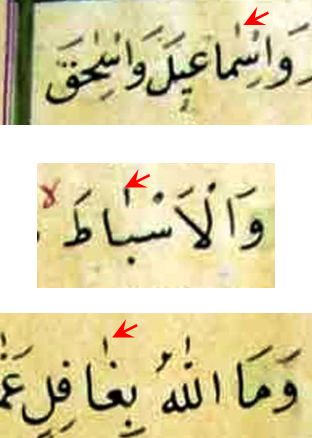 وَاِسْمٰاعِيلَ وَاِسْحٰقَ
وَالْاَسْبٰاطَ
وَمَا اللّٰهُ بِغٰافِلٍ